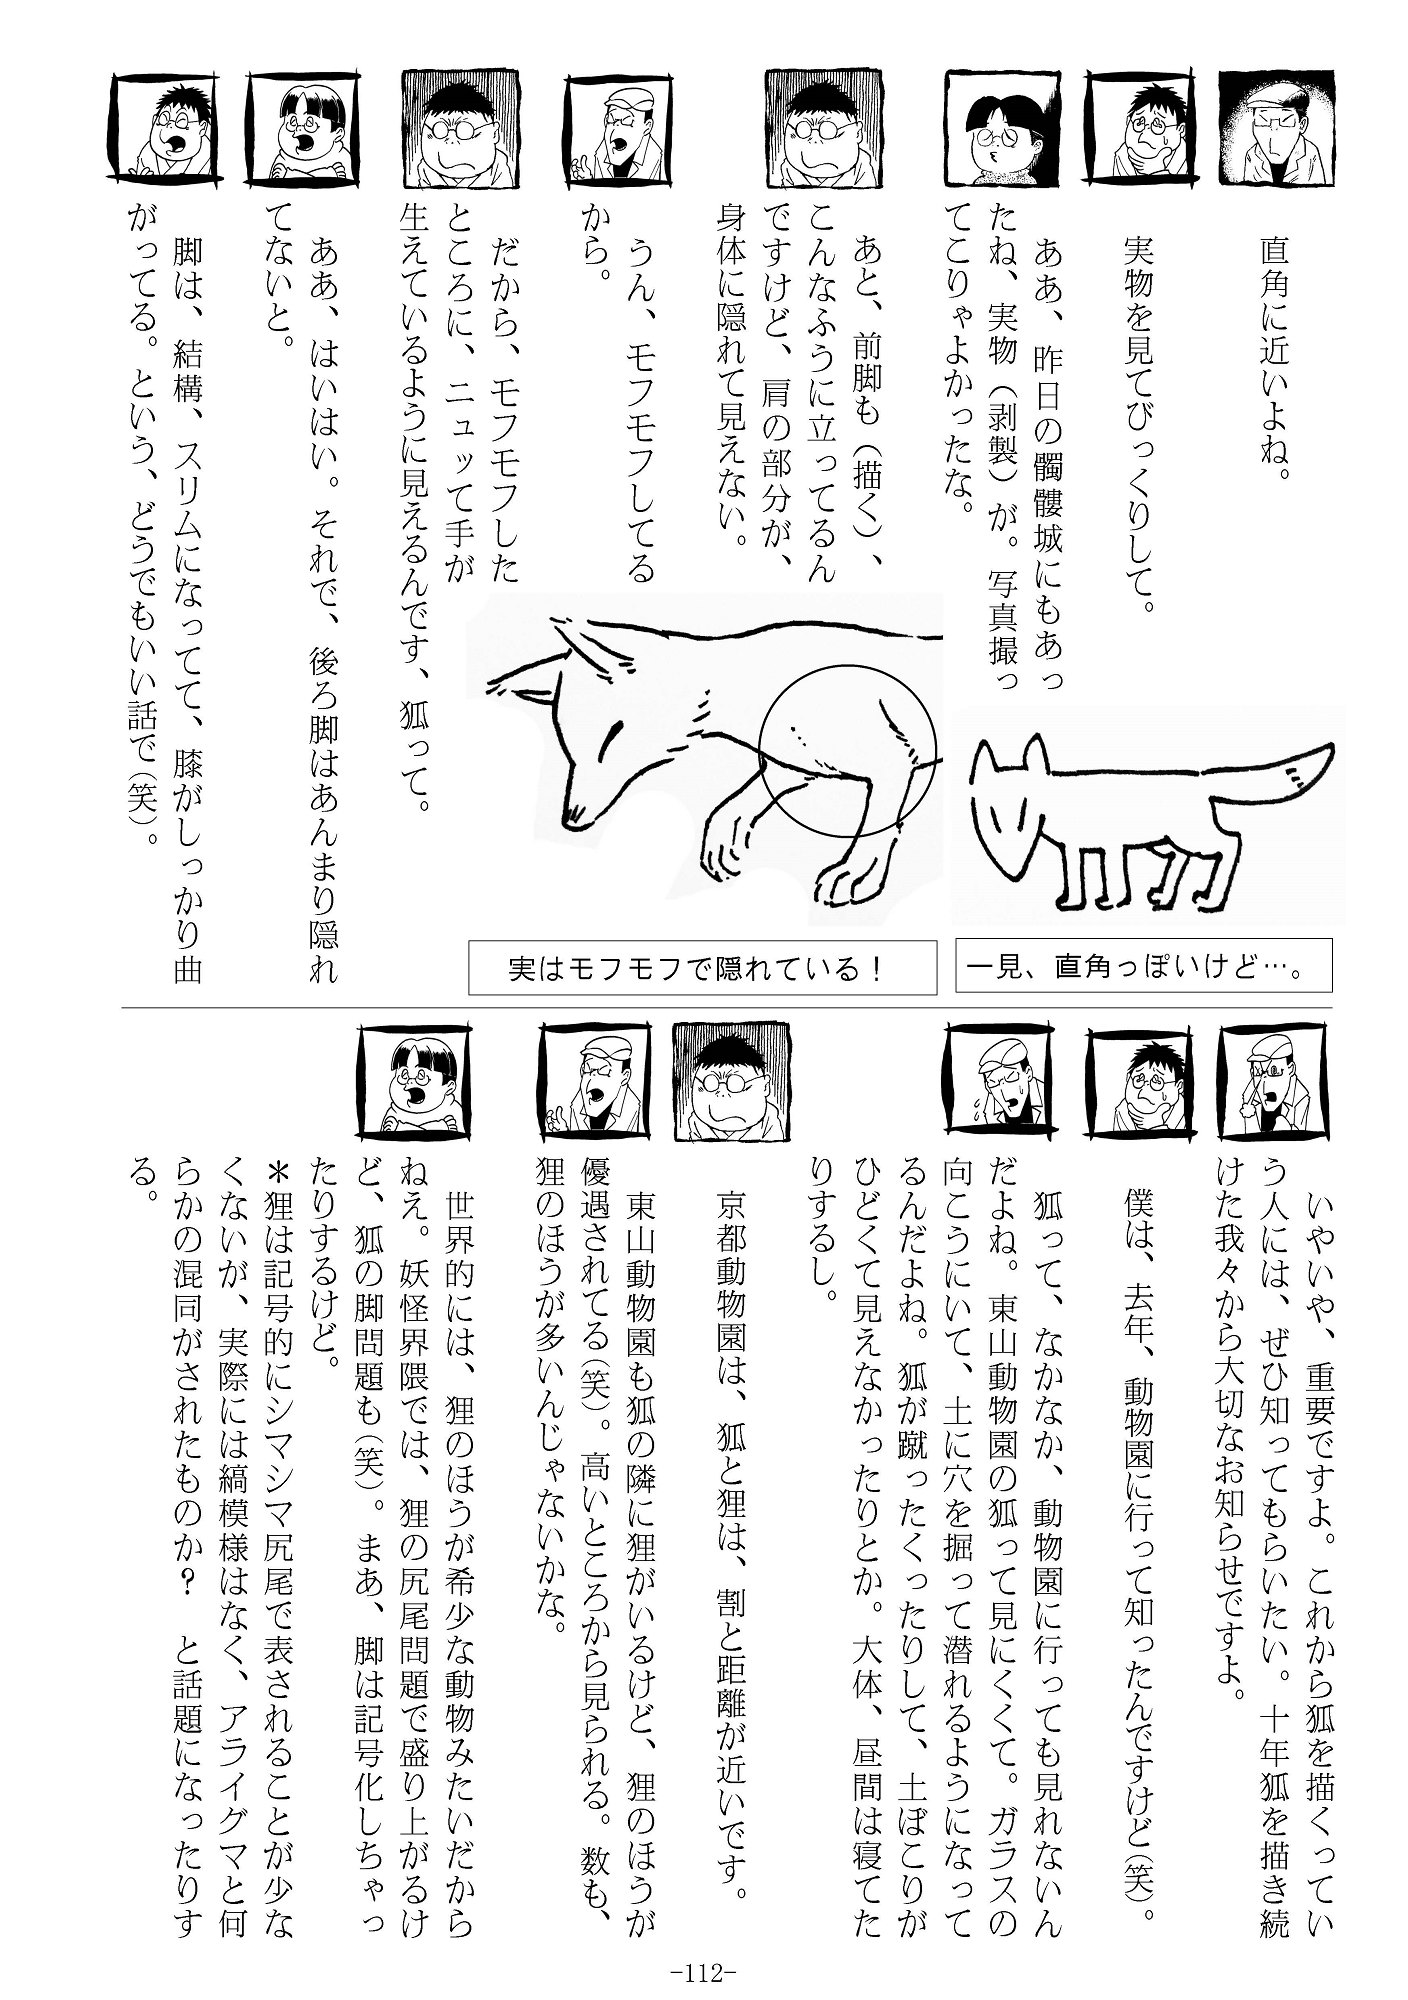 直角に近いよね。
実物を見てびっくりして。
ああ、昨日の髑髏城にもあっ
たね、実物（剥製）が。写真撮っ
てこりゃよかったな。
あと、前脚も（描く）、
こんなふうに立ってるん
ですけど、肩の部分が、
身体に隠れて見えない。
うん、モフモフしてる
から。
だから、モフモフした
ところに、ニュッて手が
生えているように見えるんです、狐って。
ああ、はいはい。それで、後ろ脚はあんまり隠れ
てないと。
脚は、結構、スリムになってて、膝がしっかり曲
がってる。という、どうでもいい話で（笑）。
一見、直角っぽいけど…。
実はモフモフで隠れている！
いやいや、重要ですよ。これから狐を描くってい
う人には、ぜひ知ってもらいたい。十年狐を描き続
けた我々から大切なお知らせですよ。
僕は、去年、動物園に行って知ったんですけど（笑）。
狐って、なかなか、動物園に行っても見れないん
だよね。東山動物園の狐って見にくくて。ガラスの
向こうにいて、土に穴を掘って潜れるようになって
るんだよね。狐が蹴ったくったりして、土ぼこりが
ひどくて見えなかったりとか。大体、昼間は寝てた
りするし。
京都動物園は、狐と狸は、割と距離が近いです。
東山動物園も狐の隣に狸がいるけど、狸のほうが
優遇されてる（笑）。高いところから見られる。数も、
狸のほうが多いんじゃないかな。
世界的には、狸のほうが希少な動物みたいだから
ねえ。妖怪界隈では、狸の尻尾問題で盛り上がるけ
ど、狐の脚問題も（笑）。まあ、脚は記号化しちゃっ
たりするけど。
＊狸は記号的にシマシマ尻尾で表されることが少な
くないが、実際には縞模様はなく、アライグマと何
らかの混同がされたものか？　と話題になったりす
る。
-112-